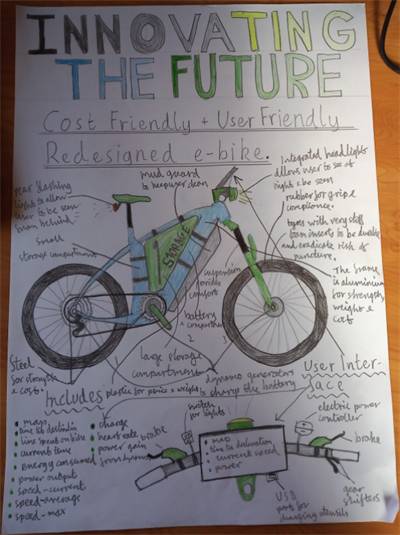 INNOVATING
THE FUTURE
Cost Friendly + User Friendly
Redesigned e-bike.
rear flashing
light to allow
user to be seen
from behind
mud guard
to keep user clean
Integrated headlights
allows user to see at
night & be seen
rubber for grip &
compliance.
tyres with very stiff
foam inserts to be durable
and eradicate risk of
puncture.
small
storage compartment
STORAGE
suspension
provides
comfort
battery
compartment
large storage
compartment
The frame
is aluminium
for strength,
weight &
cost
Steel
for strength
& cost.
plastic for price & weight
dynamo generators
to charge the battery
Includes
• map
• time spent on bike
• current time
• energy consumed
• power output
• speed-current
• speed-average
• speed-max
• charge
• heart rate
• power gain
from dynamo
User Inter-
face
switch
for lights
electric power
controller
brake
brake
• map
• time to destination
• current speed
• power
gear
shifters
USB
ports for
charging utensils